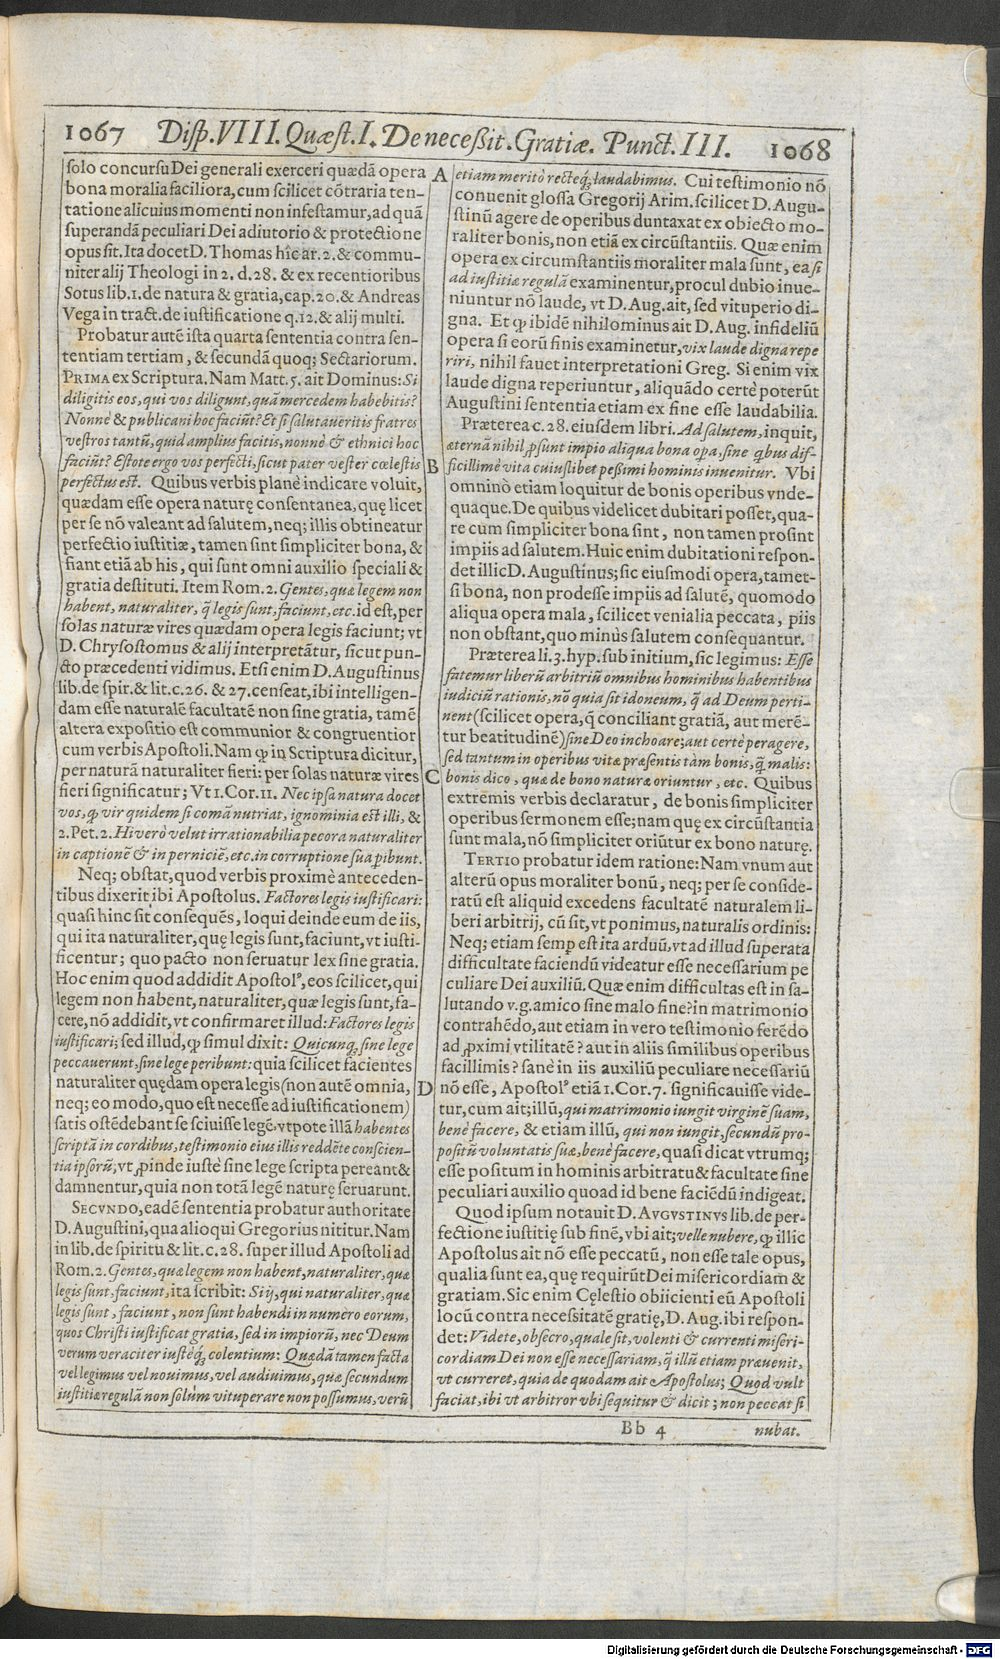 1067 Disp. VIII. Quæst. I. De neceßit. Gratiæ. Punct. III. 1068
solo concursu Dei generali exerceri quædā opera
bona moralia faciliora, cum scilicet cōtraria ten-
tatione alicuius momenti non infestamur, ad quā
superandā peculiari Dei adiutorio & protectione
opus sit. Ita docet D. Thomas hîc ar. 2. & commu-
niter alij Theologi in 2. d. 28. & ex recentioribus
Sotus lib. 1. de natura & gratia, cap. 20. & Andreas
Vega in tract. de iustificatione q. 12. & alij multi.
Probatur autē ista quarta sententia contra sen-
tentiam tertiam, & secundā quoq; Sectariorum.
PRIMA ex Scriptura. Nam Matt. 5. ait Dominus: Si
diligitis eos, qui vos diligunt, quā mercedem habebitis?
Nonnè & publicani hoc faciūt? Et si salutaueritis fratres
vestros tantū, quid amplius facitis, nonnè & ethnici hoc
faciūt? Estote ergo vos perfecti, sicut pater vester cœlestis
perfectus est. Quibus verbis planè indicare voluit,
quædam esse opera naturę consentanea, quę licet
per se nō valeant ad salutem, neq; illis obtineatur
perfectio iustitiæ, tamen sint simpliciter bona, &
fiant etiā ab his, qui sunt omni auxilio speciali &
gratia destituti. Item Rom. 2. Gentes, quæ legem non
habent, naturaliter, q̄ legis sunt, faciunt, etc. id est, per
solas naturæ vires quædam opera legis faciunt; vt
D. Chrysostomus & alij interpretātur, sicut pun-
cto præcedenti vidimus. Etsi enim D. Augustinus
lib. de spir. & lit. c. 26. & 27. censeat, ibi intelligen-
dam esse naturalē facultatē non sine gratia, tamē
altera expositio est communior & congruentior
cum verbis Apostoli. Nam ꝙ in Scriptura dicitur,
per naturā naturaliter fieri: per solas naturæ vires
fieri significatur; Vt 1. Cor. 11. Nec ipsa natura docet
vos, ꝙ vir quidem si comā nutriat, ignominia est illi, &
2. Pet. 2. Hi verò velut irrationabilia pecora naturaliter
in captionē & in perniciē, etc. in corruptione sua ꝑibunt.
Neq; obstat, quod verbis proximè anteceden-
tibus dixerit ibi Apostolus. Factores legis iustificari:
quasi hinc sit consequēs, loqui deinde eum de iis,
qui ita naturaliter, quę legis sunt, faciunt, vt iusti-
ficentur; quo pacto non seruatur lex sine gratia.
Hoc enim quod addidit Apostolꝰ, eos scilicet, qui
legem non habent, naturaliter, quæ legis sunt, fa-
cere, nō addidit, vt confirmaret illud: Factores legis
iustificari; sed illud, ꝙ simul dixit: Quicunq; sine lege
peccauerunt, sine lege peribunt: quia scilicet facientes
naturaliter quędam opera legis (non autē omnia,
neq; eo modo, quo est necesse ad iustificationem)
satis ostēdebant se sciuisse legē. vtpote illā habentes
scriptā in cordibus, testimonio eius illis reddēte conscien-
tia ipsorū; vt ꝓinde iustè sine lege scripta pereant &
damnentur, quia non totā legē naturę seruarunt.
SECVNDO, eadē sententia probatur authoritate
D. Augustini, qua alioqui Gregorius nititur. Nam
in lib. de spiritu & lit. c. 28. super illud Apostoli ad
Rom. 2. Gentes, quæ legem non habent, naturaliter, quæ
legis sunt, faciunt, ita scribit: Si ij, qui naturaliter, quæ
legis sunt, faciunt, non sunt habendi in numero eorum,
quos Christi iustificat gratia, sed in impiorū, nec Deum
verum veraciter iustèq; colentium: Quædā tamen facta
vel legimus vel nouimus, vel audiuimus, quæ secundum
iustitiæ regulā non solùm vituperare non possumus, verū
A
B
C
D
etiam meritò rectéq; laudabimus. Cui testimonio nō
conuenit glossa Gregorij Arim. scilicet D. Augu-
stinū agere de operibus duntaxat ex obiecto mo-
raliter bonis, non etiā ex circūstantiis. Quæ enim
opera ex circumstantiis moraliter mala sunt, ea si
ad iustitiæ regulā examinentur, procul dubio inue-
niuntur nō laude, vt D. Aug. ait, sed vituperio di-
gna. Et ꝙ ibidē nihilominus ait D. Aug. infideliū
opera si eorū finis examinetur, vix laude digna repe
riri, nihil fauet interpretationi Greg. Si enim vix
laude digna reperiuntur, aliquādo certè poterūt
Augustini sententia etiam ex fine esse laudabilia.
Præterea c. 28. eiusdem libri. Ad salutem, inquit,
æternā nihil ꝓsunt impio aliqua bona oꝑa, sine q̇bus dif-
ficillimè vita cuiuslibet pessimi hominis inuenitur. Vbi
omninò etiam loquitur de bonis operibus vnde-
quaque. De quibus videlicet dubitari posset, qua-
re cum simpliciter bona sint, non tamen prosint
impiis ad salutem. Huic enim dubitationi respon-
det illic D. Augustinus; sic eiusmodi opera, tamet-
si bona, non prodesse impiis ad salutē, quomodo
aliqua opera mala, scilicet venialia peccata, piis
non obstant, quo minùs salutem consequantur.
Præterea li. 3. hyp. sub initium, sic legimus: Esse
fatemur liberū arbitriū omnibus hominibus habentibus
iudiciū rationis, nō quia sit idoneum, q̄ ad Deum perti-
nent (scilicet opera, q̄ conciliant gratiā, aut merē-
tur beatitudinē) sine Deo inchoare; aut certè peragere,
sed tantum in operibus vitæ præsentis tàm bonis, q̄ malis:
bonis dico, quæ de bono naturæ oriuntur, etc. Quibus
extremis verbis declaratur, de bonis simpliciter
operibus sermonem esse; nam quę ex circūstantia
sunt mala, nō simpliciter oriūtur ex bono naturę.
TERTIO probatur idem ratione: Nam vnum aut
alterū opus moraliter bonū, neq; per se conside-
ratū est aliquid excedens facultatē naturalem li-
beri arbitrij, cū sit, vt ponimus, naturalis ordinis:
Neq; etiam semꝑ est ita arduū, vt ad illud superata
difficultate faciendū videatur esse necessarium pe
culiare Dei auxiliū. Quæ enim difficultas est in sa-
lutando v. g. amico sine malo fine? in matrimonio
contrahēdo, aut etiam in vero testimonio ferēdo
ad ꝓximi vtilitatē? aut in aliis similibus operibus
facillimis? sanè in iis auxiliū peculiare necessariū
nō esse, Apostolꝰ etiā 1. Cor. 7. significauisse vide-
tur, cum ait; illū, qui matrimonio iungit virginē suam,
benè facere, & etiam illū, qui non iungit, secundū pro-
positū voluntatis suæ, benè facere, quasi dicat vtrumq;
esse positum in hominis arbitratu & facultate sine
peculiari auxilio quoad id bene faciēdū indigeat.
Quod ipsum notauit D. AVGVSTINVS lib. de per-
fectione iustitię sub finē, vbi ait; velle nubere, ꝙ illic
Apostolus ait nō esse peccatū, non esse tale opus,
qualia sunt ea, quę requirūt Dei misericordiam &
gratiam. Sic enim Cęlestio obiicienti eū Apostoli
locū contra necessitatē gratię, D. Aug. ibi respon-
det: Videte, obsecro, quale sit, volenti & currenti miseri-
cordiam Dei non esse necessariam, q̄ illū etiam præuenit,
vt curreret, quia de quodam ait Apostolus; Quod vult
faciat, ibi vt arbitror vbi sequitur & dicit; non peccat si
Bb 4 nubat.
Digitalisierung gefördert durch die Deutsche Forschungsgemeinschaft - DFG